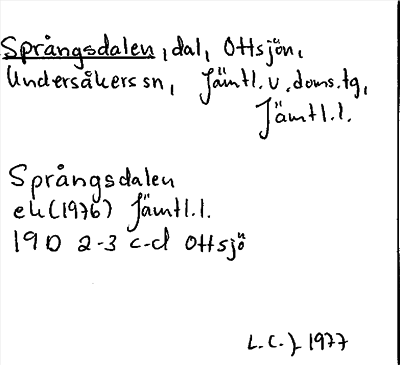 Språngsdalen, dal, Ottsjön,
Undersåkers sn, Jämtl. v. doms. tg,
Jämtl. l.
Språngsdalen
ek (1976) Jämtl. l.
19D 2-3 c-d Ottsjö
L.C.J. 1977